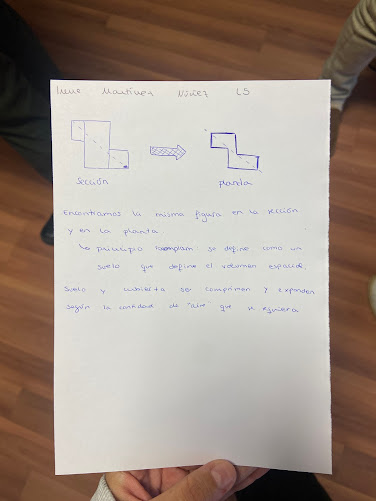 Irene Martínez Núñez L5
sección
planta
Encontramos la misma figura en la sección
y en la planta.
principio se define como un
suelo que define el volumen espacial
suelo y cubierta se comprimen y expanden
según la cantidad de "aire" que se quiera